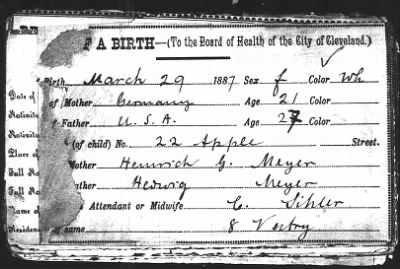 F A BIRTH—(To the Board of Health of the City of Cleveland.)
Birth March 29 1887 Sex f Color Wh
Date of
of Mother Germany Age 21 Color
Nativity
Father U.S.A. Age 27 Color
Nativity
(of child) No. 22 Apple Street.
Place of
Mother Heinrich G. Meyer
Full Na
ather Hedwig Meyer
Full Na
Attendant or Midwife C. Sihler
Name of
8 Vestry
Residence name